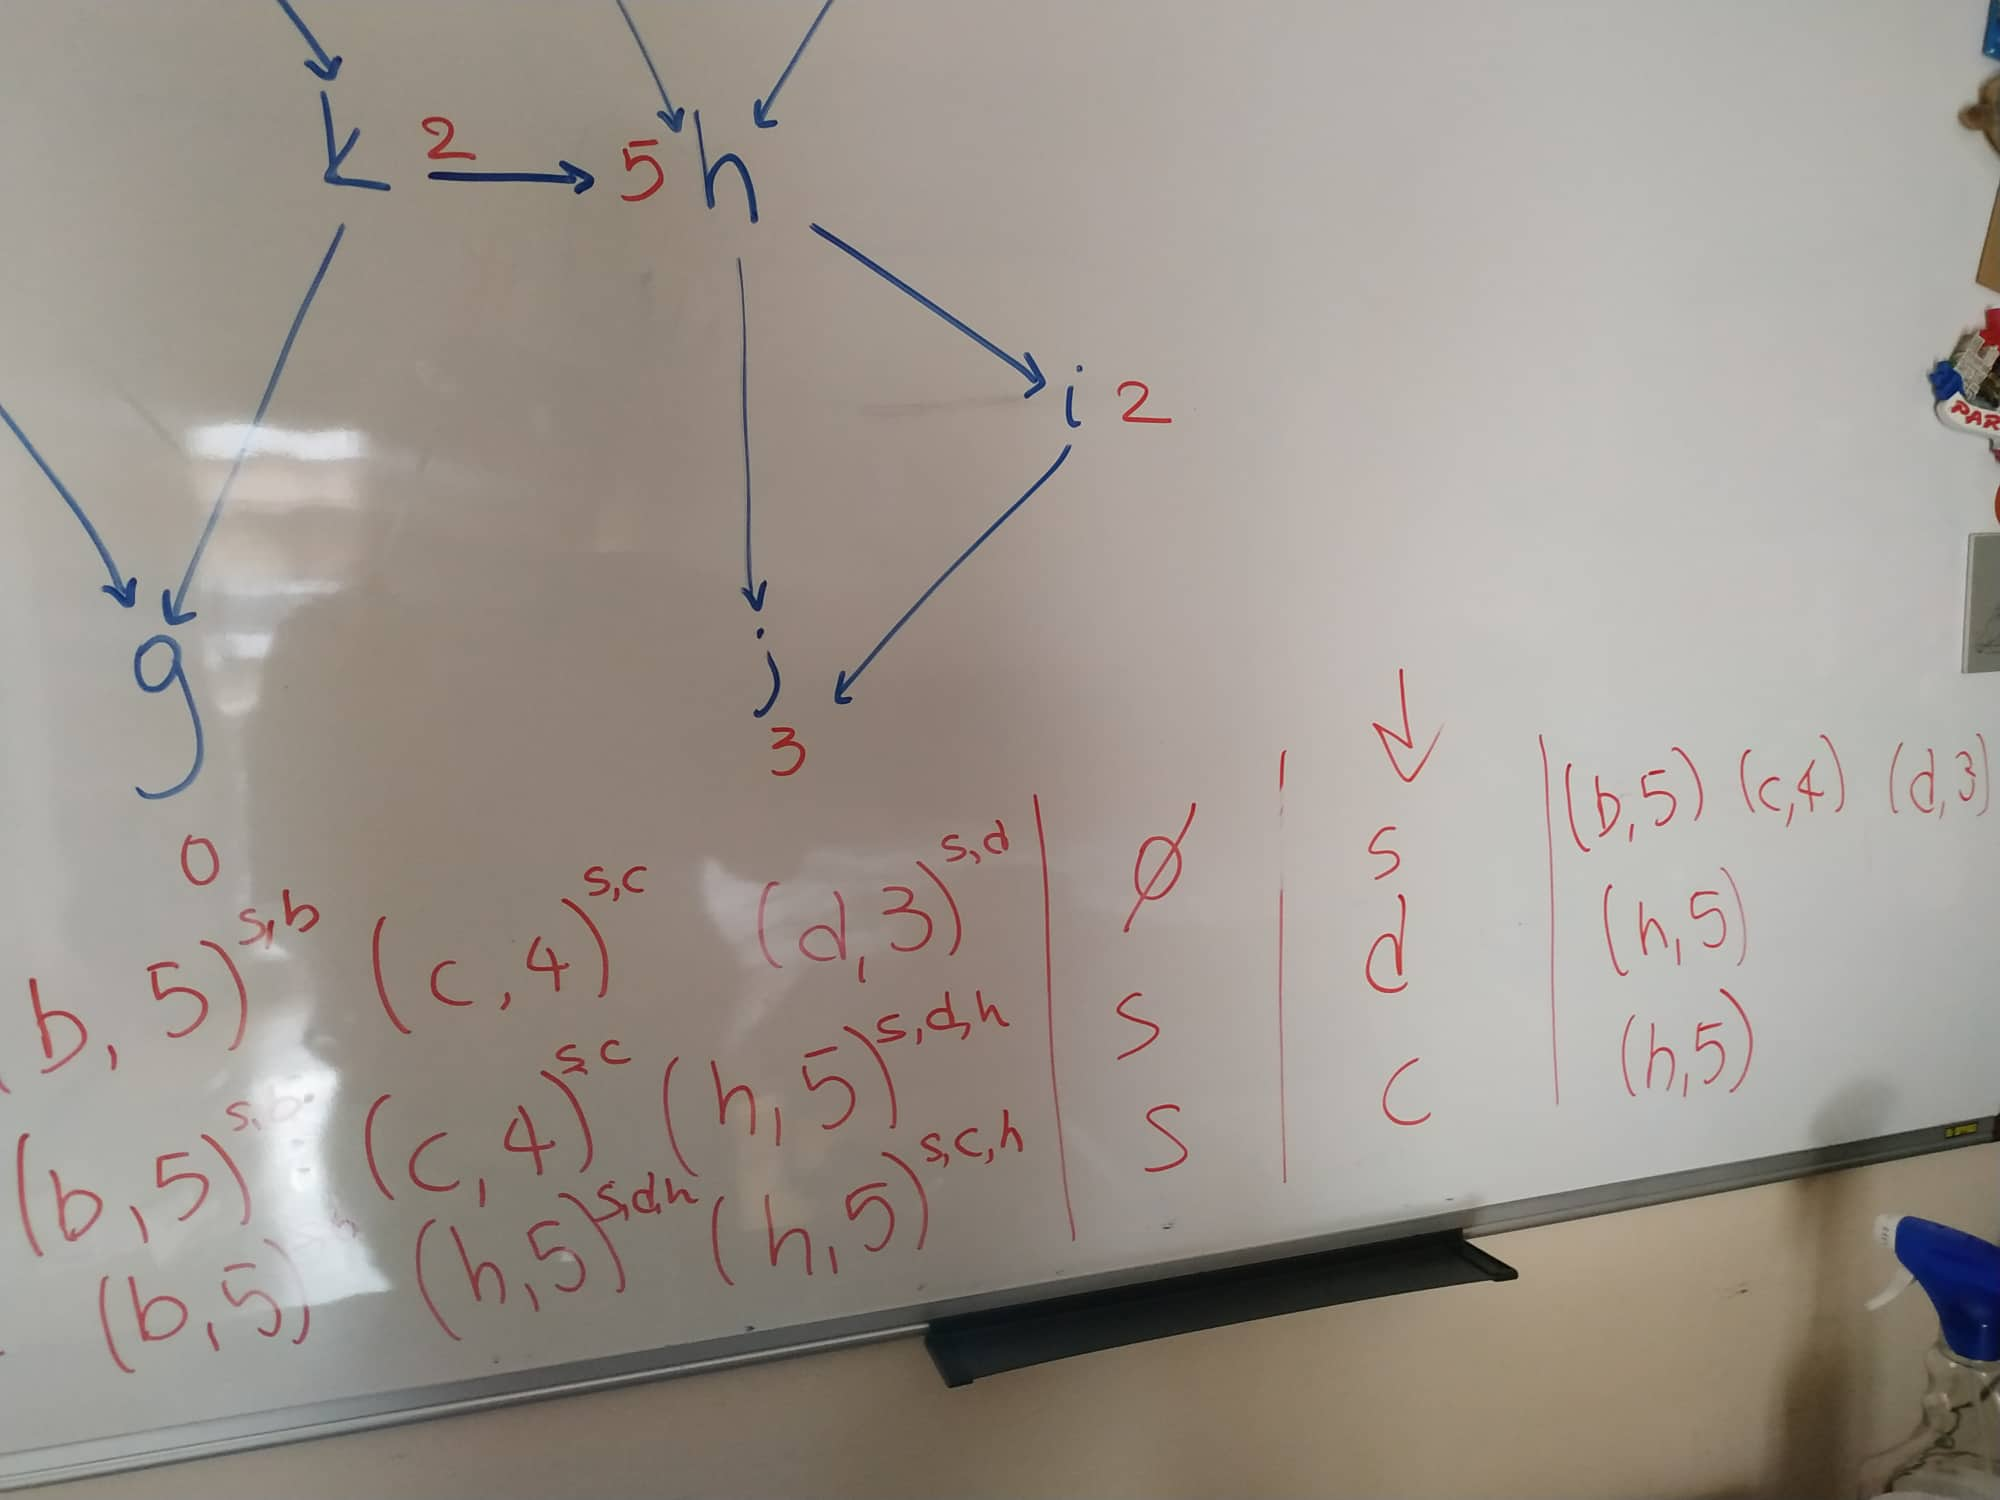 k 2 5 h
i 2
g
j
3
0
PAR
b, 5) s,b (c, 4) s,c (d,3) s,d | ∅ | s | (b,5) (c,4) (d,3)
(b,5) s,b (c,4) s,c (h,5) s,d,h | s | d | (h,5)
(b,5) (h,5) s,d,h (h,5) s,c,h | s | c | (h,5)